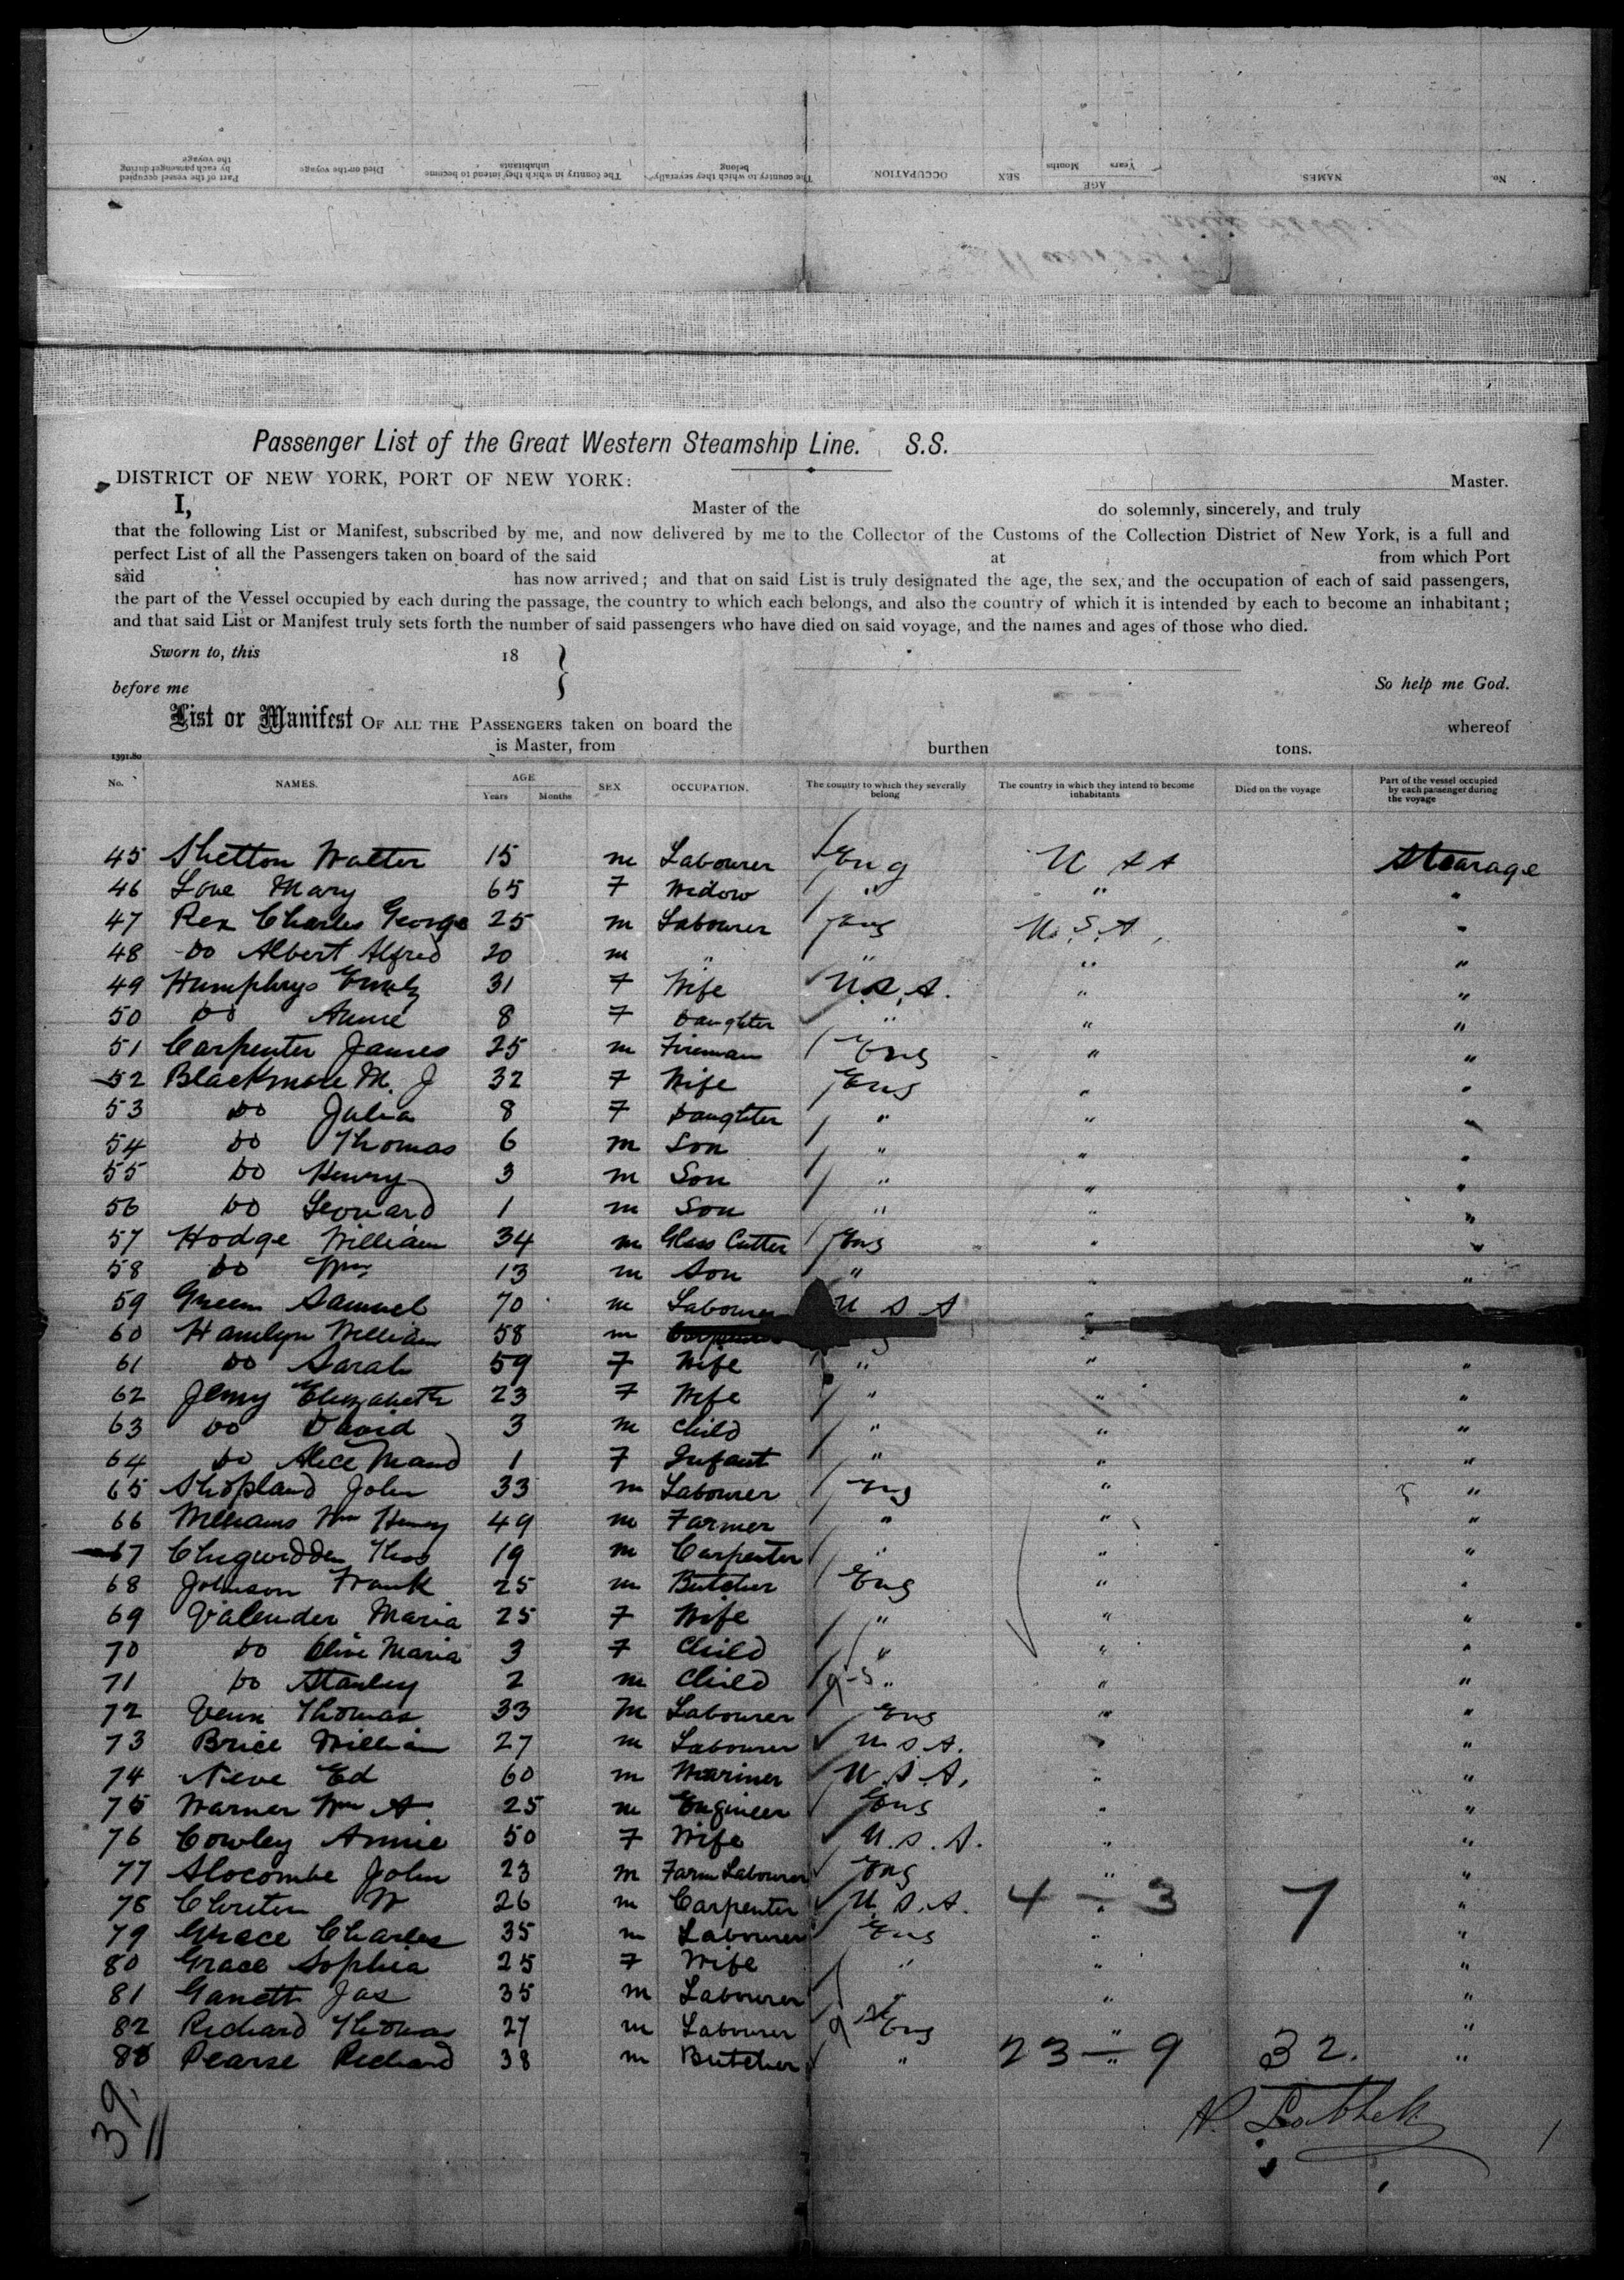 No.
NAMES.
AGE
Years
Months
SEX
OCCUPATION.
The country to which they severally belong
The country in which they intend to become inhabitants
Died on the voyage
Part of the vessel occupied by each passenger during the voyage
Passenger List of the Great Western Steamship Line. S.S.
DISTRICT OF NEW YORK, PORT OF NEW YORK: Master.
I, Master of the do solemnly, sincerely, and truly
that the following List or Manifest, subscribed by me, and now delivered by me to the Collector of the Customs of the Collection District of New York, is a full and
perfect List of all the Passengers taken on board of the said at from which Port
said has now arrived; and that on said List is truly designated the age, the sex, and the occupation of each of said passengers,
the part of the Vessel occupied by each during the passage, the country to which each belongs, and also the country of which it is intended by each to become an inhabitant;
and that said List or Manifest truly sets forth the number of said passengers who have died on said voyage, and the names and ages of those who died.
Sworn to, this 18 }
before me So help me God.
List or Manifest OF ALL THE PASSENGERS taken on board the whereof
is Master, from burthen tons.
1391.80
No. NAMES. AGE SEX OCCUPATION. The country to which they severally belong The country in which they intend to become inhabitants Died on the voyage Part of the vessel occupied by each passenger during the voyage
Years Months
45 Shetton Walter 15 m Labourer Eng U S A Stearage
46 Love Mary 65 F Widow " " "
47 Rex Charles George 25 m Labourer Eng U.S.A. "
48 Do Albert Alfred 20 m " " " "
49 Humphrys Emily 31 F Wife U.S.A. " "
50 Do Annie 8 F Daughter " " "
51 Carpenter James 25 m Fireman Eng " "
52 Blackmore M. J 32 F Wife Eng " "
53 Do Julia 8 F Daughter " " "
54 Do Thomas 6 m Son " " "
55 Do Henry 3 m Son " " "
56 Do Leonard 1 m Son " " "
57 Hodge William 34 m Glass Cutter Eng " "
58 Do Wm 13 m Son " " "
59 Green Samuel 70 m Labourer U S A "
60 Hamlyn William 58 m "
61 Do Sarah 59 F Wife " " "
62 Jenny Elizabeth 23 F Wife " " "
63 Do David 3 m Child " " "
64 Do Alice Maud 1 F Infant " " "
65 Shopland John 33 m Labourer Eng " "
66 Williams Wm Henry 49 m Farmer " " "
67 Chigwidden Thos 19 m Carpenter " " "
68 Johnson Frank 25 m Butcher Eng " "
69 Valender Maria 25 F Wife " " "
70 Do Olive Maria 3 F Child " " "
71 Do Stanley 2 m Child " " "
72 Venn Thomas 33 M Labourer Eng " "
73 Brice William 27 m Labourer U.S.A. " "
74 Neve Ed 60 m Mariner U.S.A. " "
75 Warner Wm A 25 m Engineer Eng " "
76 Cowley Annie 50 F Wife U.S.A. " "
77 Slocombe John 23 m Farm Labourer Eng " "
78 W 26 m Carpenter U.S.A. " 4 - 3 7 "
79 Grace Charles 35 m Labourer Eng " "
80 Grace Sophia 25 F Wife " " "
81 Garrett Jas 35 m Labourer " " "
82 Richard Thomas 27 m Labourer Eng " "
83 Pearse Richard 38 m Butcher " " 23 - 9 32. "
39